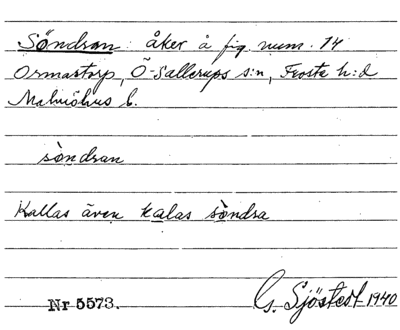 Söndran: åker å fig. num. 14
Ormastorp, Ö-Sallerups s:n, Frosta h:d
Malmöhus l.
sòndran
Kallas även kalas sòndra
Nr 5573. G. Sjöstedt 1940